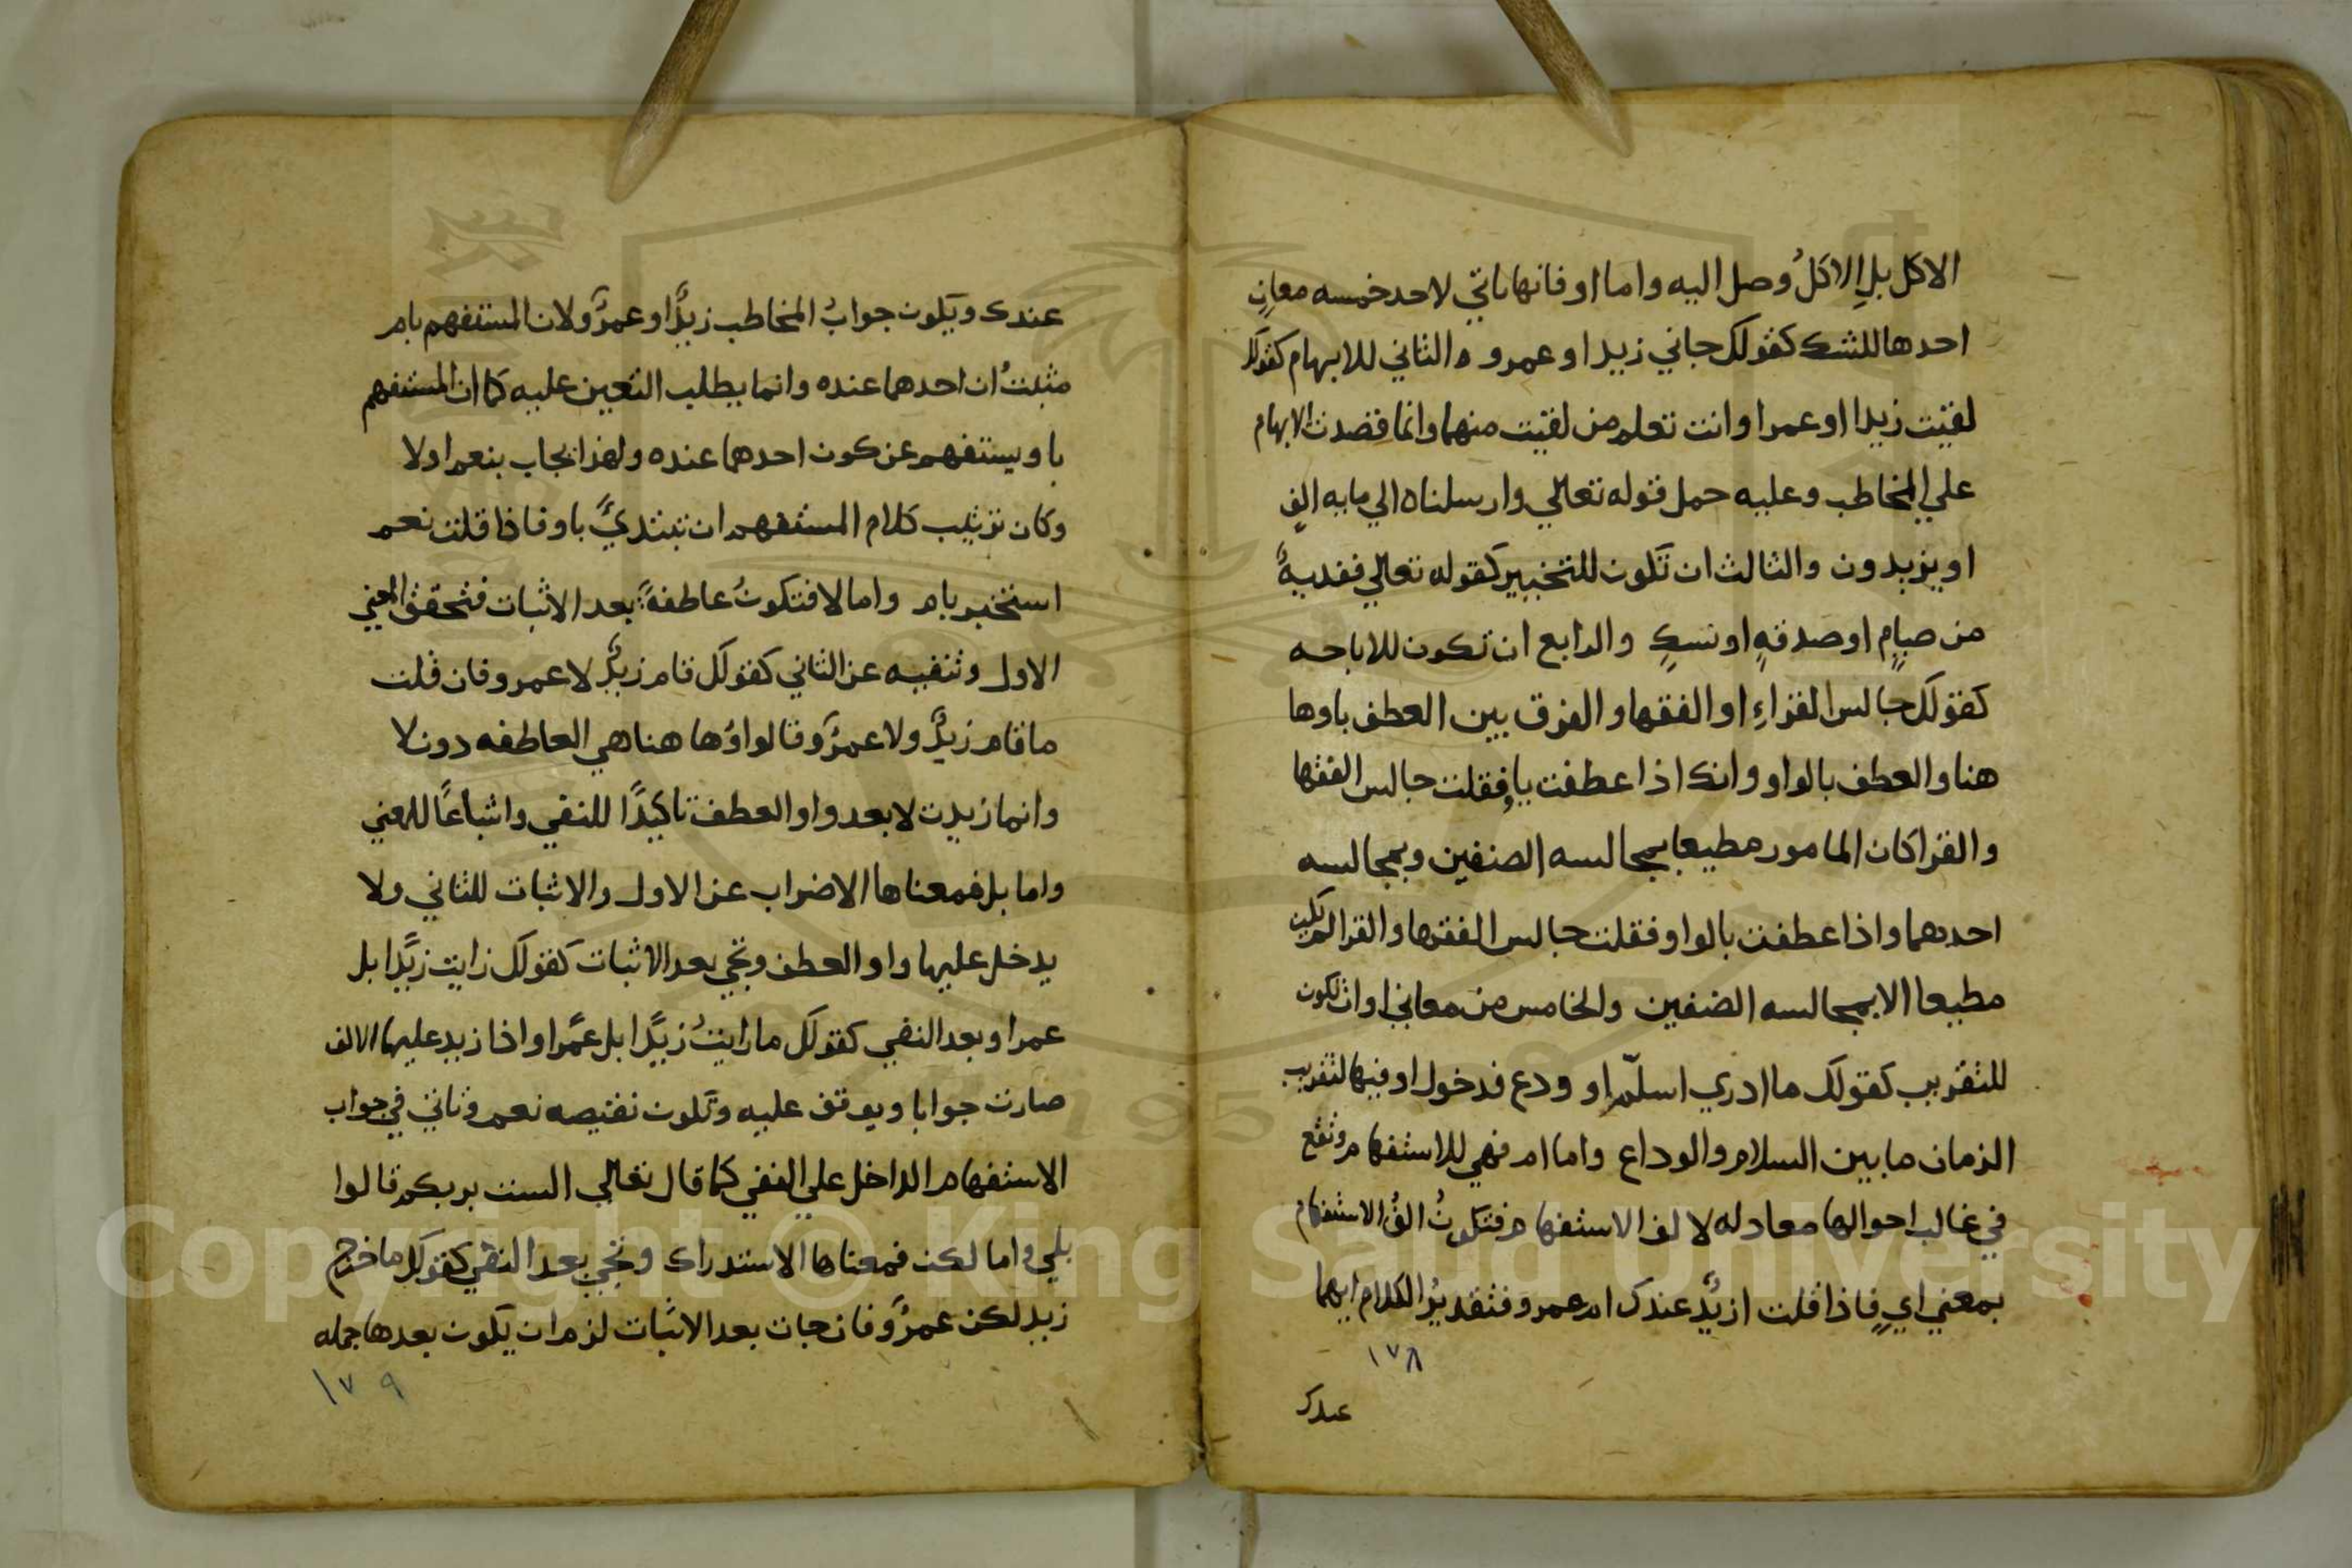 الاكل بلِ الاكلُ وصل اليه واما او فانها تاتي لاحد خمسه معانٍ
احدها للشك كقولك جاني زيد او عمرو والثاني للابهام كقولك
لقيت زيدا او عمرا وانت تعلم من لقيت منهما وانما قصدت الابهام
علي المخاطب وعليه حمل قوله تعالي وارسلناه الي مايه الفٍ
او يزيدون والثالث ان تكون للتخيير كقوله تعالي ففديةٌ
من صيامٍ او صدقةٍ او نسكٍ والرابع ان تكون للاباحه
كقولك جالس القراءِ او الفقها والفرق بين العطف باوها
هنا والعطف بالواو وانك اذا عطفت باو فقلت جالس الفقها
والقرا كان المامور مطيعا بمجالسه الصنفين وبمجالسه
احدهما واذا عطفت بالواو فقلت جالس الفقها والقرا لم يكن
مطيعا الا بمجالسه الصنفين والخامس من معاني او ان تكون
للتقريب كقولك ما ادري اسلّم او ودع فدخول او فيها لتقريب
الزمان ما بين السلام والوداع واما ام فهي للاستفهام وتقع
في غالب احوالها معادله لالف الاستفهام فتكونُ الفُ الاستفهام
بمعني ايٍ فاذا قلت ازيدٌ عندك ام عمرو فتقديرُ الكلام ايهما
١٧٨
عندك
عندك ويكون جوابُ المخاطب زيدٌ او عمرٌو ولان المستفهم بام
مثبتٌ ان احدهما عنده وانما يطلب التعين عليه كما ان المستفهم
باو يستفهم عن كون احدهما عنده ولهذا يجاب بنعم او لا
وكان ترتيب كلام المستفهم ان تبتديَ باو فاذا قلت نعم
استخبر بام واما لا فتكونُ عاطفةً بعد الاثبات فتحقق المعني
الاول وتنفيه عن الثاني كقولك قام زيدٌ لا عمرو فان قلت
ما قام زيدٌ ولا عمرٌو فالواوُها هنا هي العاطفه دون لا
وانما زيدت لا بعد واو العطف تاكيدًا للنفي واشباعًا للمعني
واما بل فمعناها الاضراب عن الاول والاثبات للثاني ولا
يدخل عليها واو العطف وتجي بعد الاثبات كقولك رايت زيدًا بل
عمرا وبعد النفي كقولك ما رايتُ زيدًا بل عمرًا واذا زيد عليها الالف
صارت جوابا ويوقف عليه وتكون نقيصه نعم وتاتي في جواب
الاستفهام الداخل علي النفي كما قال تعالي الست بربكم قالوا
بلي واما لكن فمعناها الاستدراك وتجي بعد النفي كقولك ما خرج
زيد لكن عمرٌو فان جات بعد الاثبات لزم ان يكون بعدها جمله
١٧٩
Copyright © King Saud University
1957